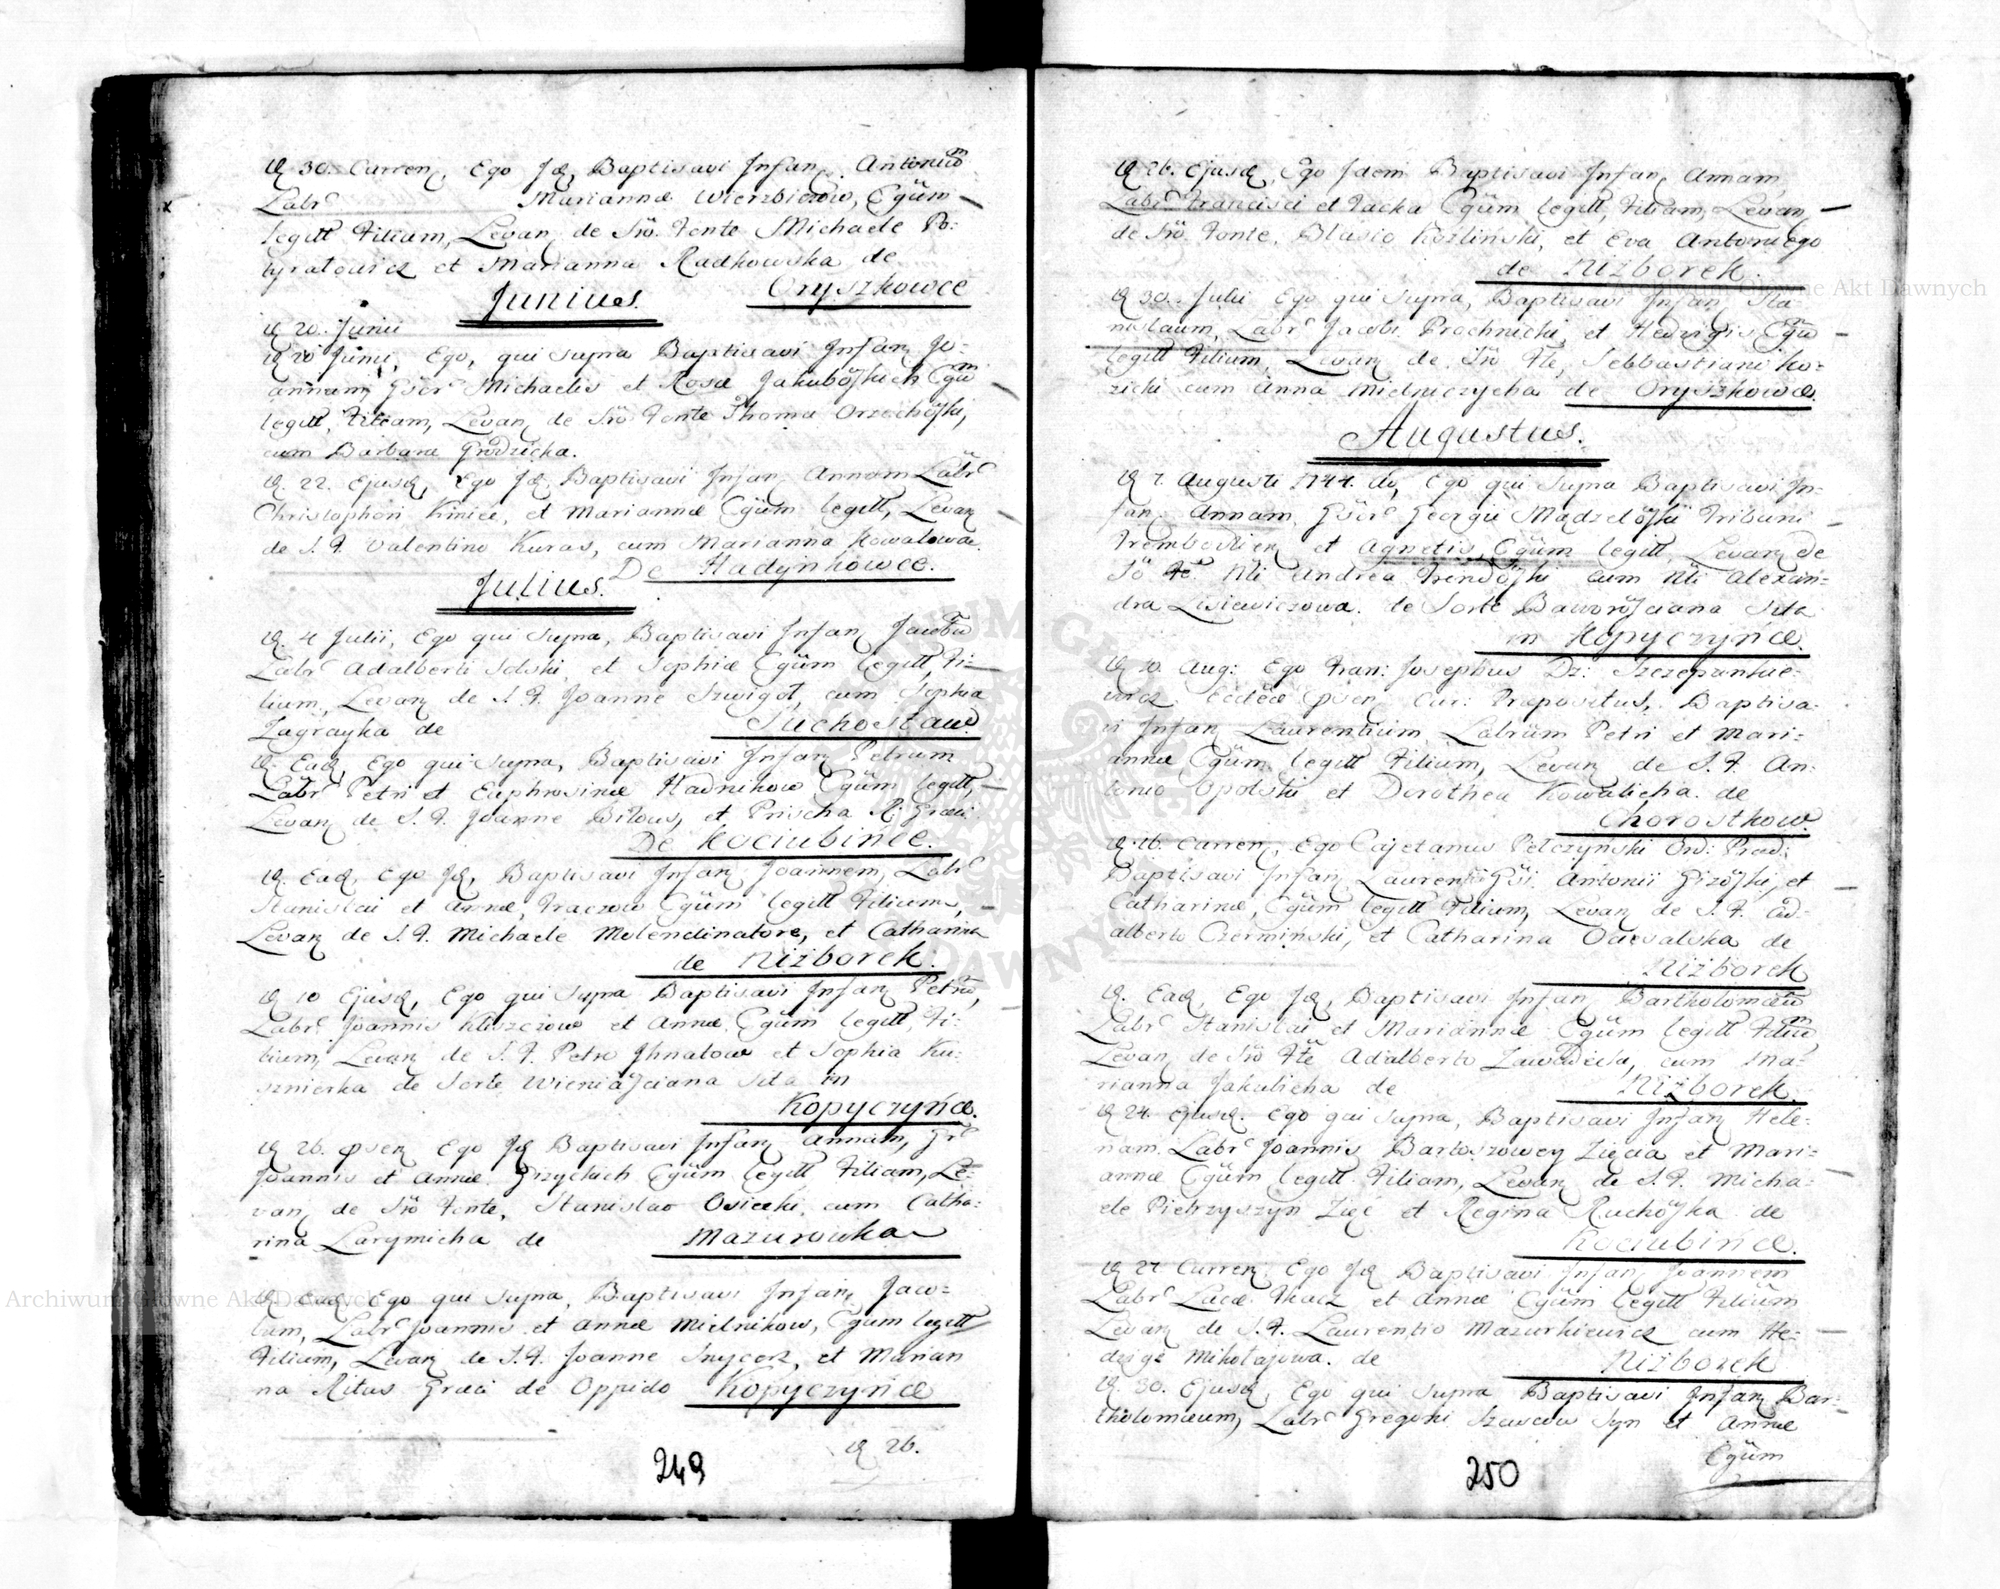 30. Curren, Ego Jd, Baptisavi Infan, Antonium
Labr Mariannæ Wierzbiców, Cgüm
legitt Filium, Levan de Sto Fonte Michaele Po:
tyralowicz et Marianna Radkowska de
Oryszkowce
Junius.
20. Junii
20 Junii, Ego, qui supra Baptisavi Infan Jo:
annam, Gsor Michaelis et Rosæ Jakubo̊skich Cgüm
legitt, Filiam, Levan de Sto Fonte Thoma Orzecho̊ski,
cum Barbara Grodzicka.
22. Ejusd, Ego Jd, Baptisavi Infan, Annam Labr
Christophori Kmice, et Mariannæ Cgüm legitt, Levan
de S. F. Valentino Kuras, cum Marianna Kowalowa.
De Hadynkowce.
Julius.
4 Julii, Ego qui supra, Baptisavi Infan Jacobum
Labr Adalberti Solski, et Sophiæ Cgüm legitt, Fi-
lium, Levan de S. F. Joanne Szwigot, cum Sophia
Zagrayka de Suchostaw.
Ead, Ego qui supra, Baptisavi Infan Petrum
Labr Petri et Euphrosinæ Hadnikow Cgüm legitt,
Levan de S. F. Joanne Bilous, et Prischa R. Græci
De Kociubince.
Ead, Ego Jd, Baptisavi Infan Joannem, Labr
Stanislai et Annæ, Traczow Cgüm legitt Filium,
Levan de S. F. Michaele Molendinatore, et Catharina
de Niżborek.
10 Ejusd, Ego qui supra Baptisavi Infan Petrum,
Labr Joannis Kliszczow et Annæ Cgüm legitt, Fi-
lium, Levan de S. F. Petro Ihnatow et Sophia Ku:
sznierka de Sorte Wieniåsciana sita in
Kopyczyńce.
26. præsen Ego Jd Baptisavi Infan Annam, Gr
Joannis et Annæ Gizyckich Cgüm legitt Filiam, Le:
van de Sto Fonte, Stanislao Osiecki, cum Catha:
rina Larymicha de Mazurowka
Ead Ego qui supra, Baptisavi Infan, Jaco-
bum, Labr Joannis et Annæ Mielnikow, Cgüm legitt
Filium, Levan de S. F. Joanne Snycerz, et Marian
na Ritus Græci de Oppido Kopyczyńce
26.
249
26. Ejusd, Ego Idem Baptisavi Infan Annam,
Labr Francisci et Jacka Cgüm legitt, Filiam, Levan,
de Sto Fonte, Blasio Kozliński, et Eva Antoniego
de Niżborek.
30. Julii Ego qui supra, Baptisavi Infan Sta-
nislaum, Labr Jacobi Prochnicki, et Hedvigis Cgüm
legitt Filium, Levan de Sto Fte, Sebbastiani Ko:
zicki cum Anna Mielniczycha de Oryszkowce.
Augustus.
7. Augusti 1744. do, Ego qui supra Baptisavi In-
fan Annam Gsor Georgii Madzelo̊ski Tribuni
Trembovlien et Agnetis, Cgüm legitt, Levan de
So Fte. Mi Andrea Trendo̊ski cum Mi Alexan-
dra Lisiewiczowa. de Sorte Baworo̊sciana sita
in Kopyczyńce.
10. Aug: Ego Fran: Josephus Dz: Szczepankie-
wicz Ecclæ præsen Cur: Præpositus, Baptisa-
vi Infan Laurentium Labrum Petri et Mari:
annæ Cgüm legitt Filium, Levan de S. F. An:
tonio Opolski et Dorothea Kowalicha. de
Chorostkow.
16. Curren, Ego Cajetanus Petczyński Ord: Præd:
Baptisavi Infan, Laurenti Gsi Antonii Gizo̊ski, et
Catharinæ, Cgüm legitt Filium, Levan de S. F. Ad-
alberto Czermiński, et Catharina Ociesalska de
Niżborek
Ead, Ego Jd, Baptisavi Infan Bartholomæum
Labr Stanislai et Mariannæ Cgüm legitt Filium
Levan de Sto Fte Adalberto Zawadecki, cum Ma-
rianna Jakubicha de Niżborek.
24. Ejusd. Ego qui supra, Baptisavi Infan Hele:
nam Labr Joannis Bartoszowey Zięcia et Mari-
annæ Cgüm legitt Filiam, Levan de S. F. Micha:
ele Pietrzyszyn Zięć et Regina Rucho̊ska de
Kociubińce.
27 Curren, Ego Jd Baptisavi Infan Joannem
Labr Lucæ Tkacz et Annæ Cgüm legitt Filium
Levan de S. F. Laurentio Mazurkiewicz cum He:
dvige Mikołajowa. de Niżborek
30. Ejusd, Ego qui supra Baptisavi Infan Bar:
tholomæum, Labr Gregorii Szawcow Syn et Annæ
Cgüm
250
Archiwum Główne Akt Dawnych
Archiwum Główne Akt Dawnych